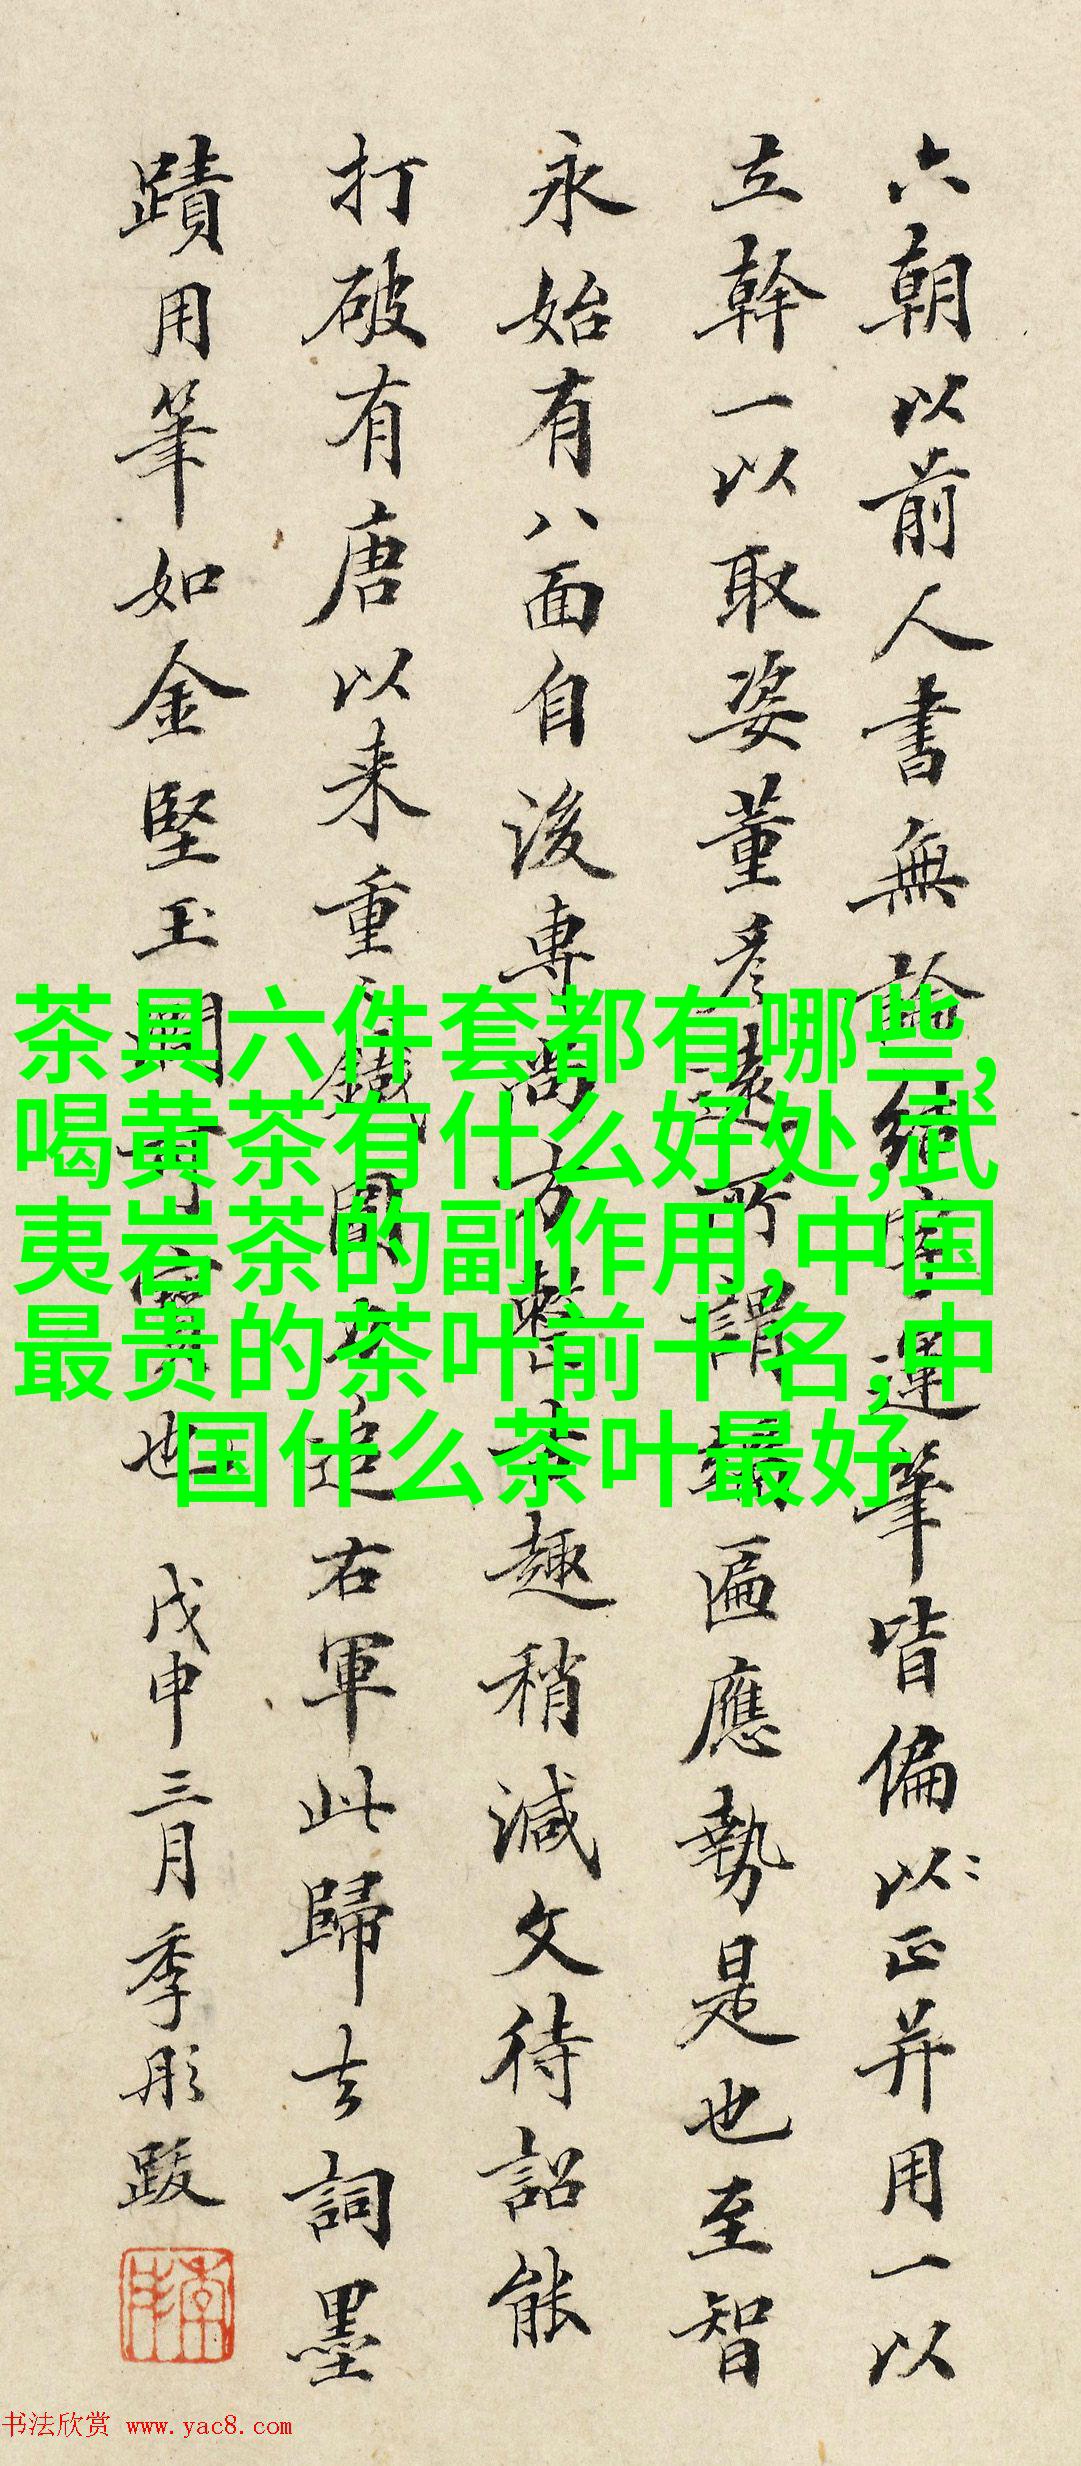 六朝以前人書無論結字運筆皆偏以正并用一以
立幹一以取姿董彥遠所謂遍應勢是也至智
永始有八面自後專尚方整其趣稍減文待詔能
打破有唐以来重鐵圍力追右軍此歸去詞墨
蹟用筆如金堅玉潤可寶也 戊申三月季彤跋
茶具六件套都有哪些,
喝黄茶有什么好处,武
夷岩茶的副作用,中国
最贵的茶叶前十名,中
国什么茶叶最好
书法欣赏 www.yac8.com